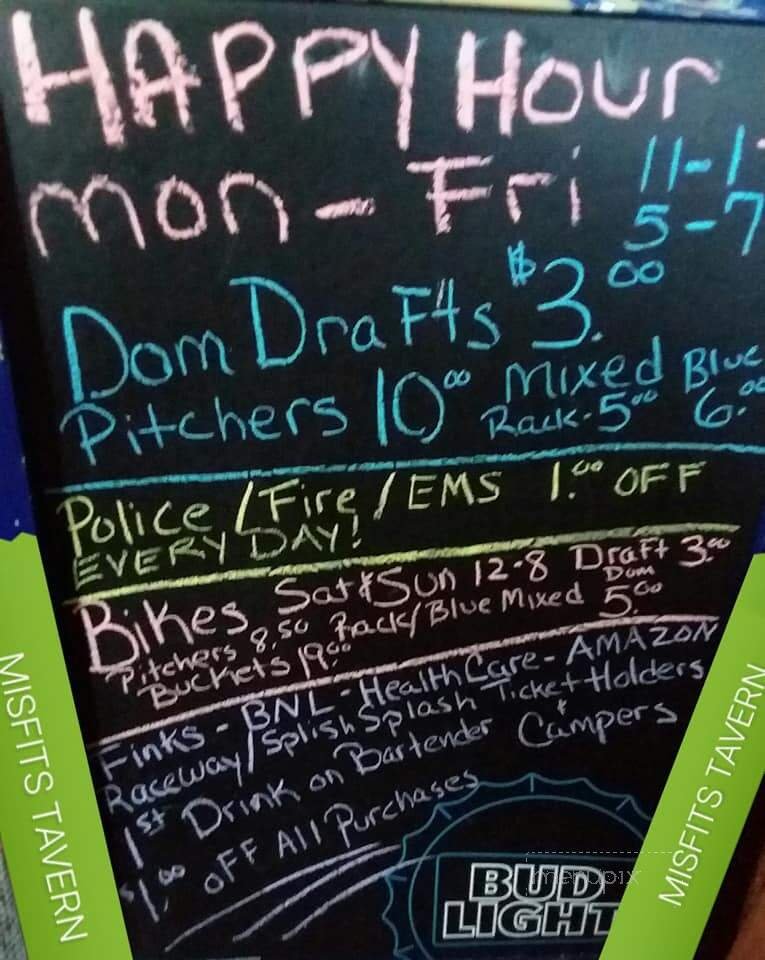 HAPPY Hour
Mon - Fri 11-1
5-7
Dom Drafts $3.00
Pitchers 10.00 Mixed Rack-5.00 Blue 6.00
Police/Fire/EMS 1.00 OFF
EVERY DAY!
Bikes Sat & Sun 12-8 Draft Dom 3.00
Pitchers 8.50 Rack/Blue Mixed 5.00
Buckets 19.00
Finks - BNL - HealthCare - AMAZON
Raceway/Splish Splash Ticket Holders
1st Drink on Bartender & Campers
$1.00 OFF All Purchases
BUD
LIGHT
menupix
MISFITS TAVERN
MISFITS TAVERN